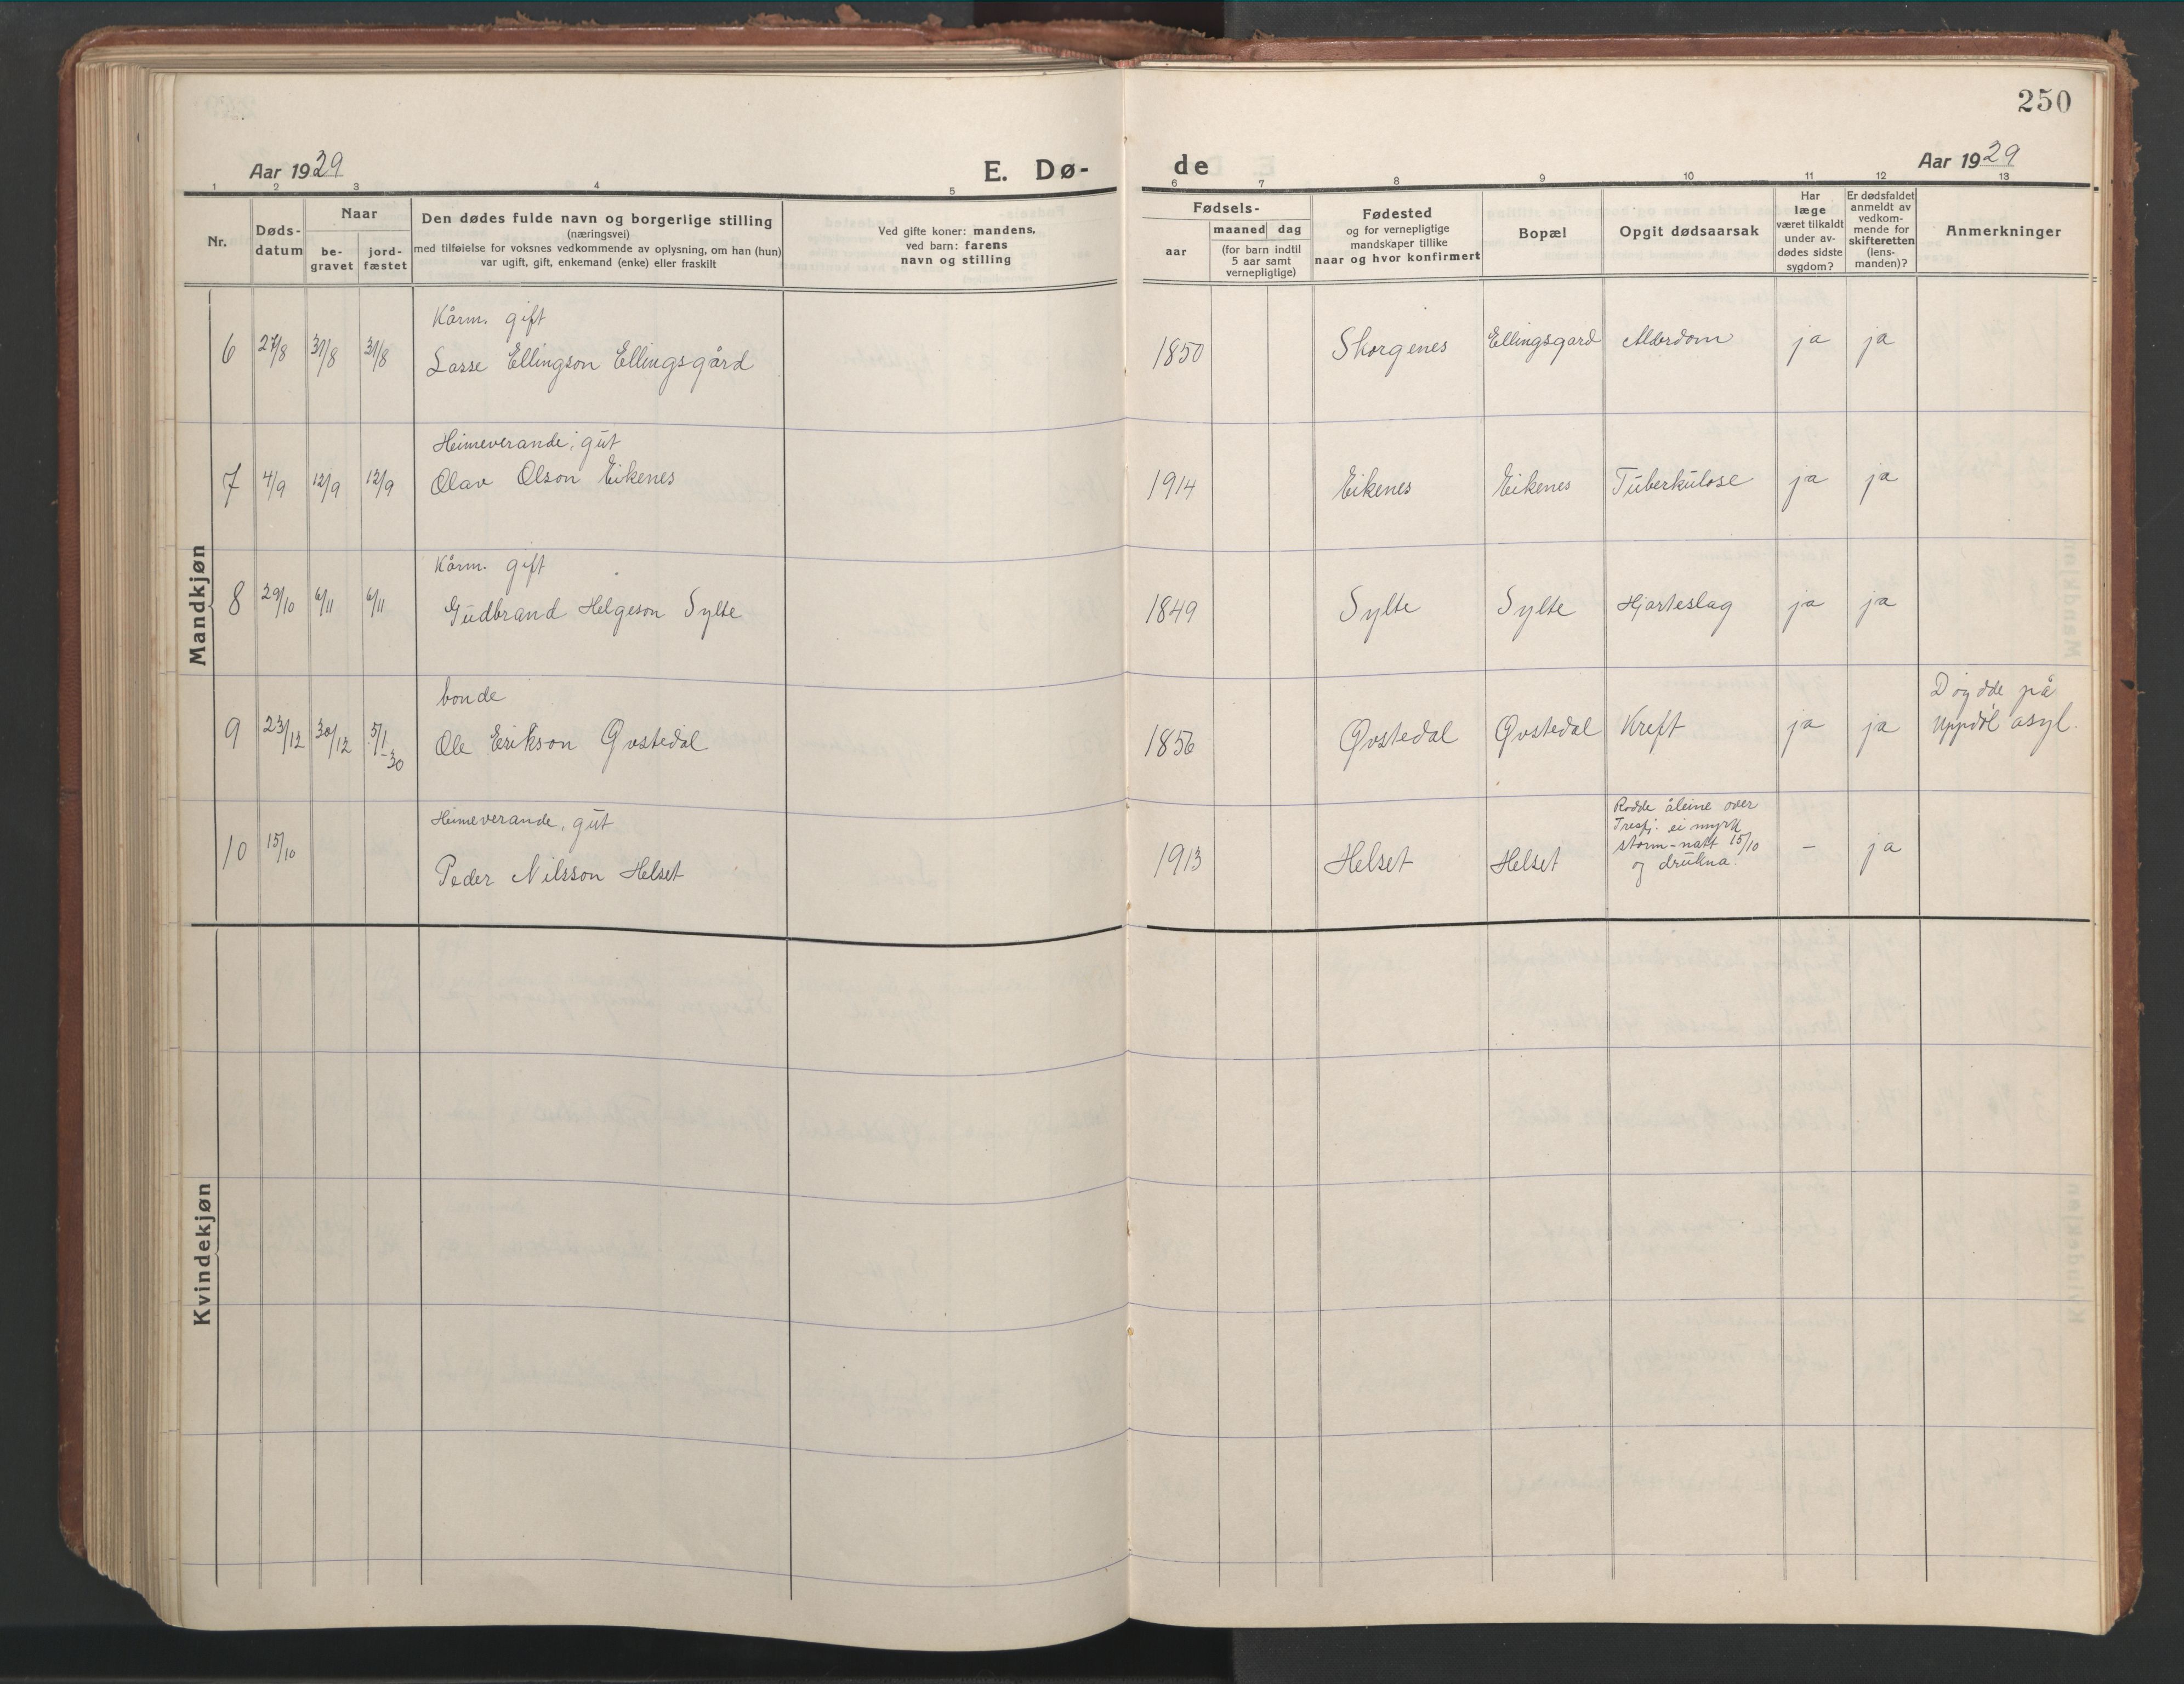 250
Aar 1929
E. Dø-
de
Aar 1929
1 2 3 4 5 6 7 8 9 10 11 12 13
Nr.
Døds-
datum
Naar
be-
gravet
jord-
fæstet
Den dødes fulde navn og borgerlige stilling
(næringsvei)
med tilføielse for voksnes vedkommende av oplysning, om han (hun)
var ugift, gift, enkemand (enke) eller fraskilt
Ved gifte koner: mandens,
ved barn: farens
navn og stilling
Fødsels-
aar
maaned dag
(for barn indtil
5 aar samt
vernepligtige)
Fødested
og for vernepligtige
mandskaper tillike
naar og hvor konfirmert
Bopæl
Opgit dødsaarsak
Har
læge
været tilkaldt
under av-
dødes sidste
sygdom?
Er dødsfaldet
anmeldt av
vedkom-
mende for
skifteretten
(lens-
manden)?
Anmerkninger
Mandkjøn
Kårm. gift
6 27/8 31/8 31/8 Lasse Ellingson Ellingsgård 1850 Skorgenes Ellingsgard Alderdom ja ja
Heimeverande, gut
7 4/9 12/9 12/9 Olav Olson Eikenes 1914 Eikenes Eikenes Tuberkulose ja ja
Kårm. gift
8 29/10 6/11 6/11 Gudbrand Helgeson Sylte 1849 Sylte Sylte Hjarteslag ja ja
bonde
9 23/12 30/12 5/1-30 Ole Erikson Øvstedal 1856 Øvstedal Øvstedal Kreft ja ja Døydde på
Uppdøl asyl.
Heimeverande, gut
10 15/10 Peder Nilsson Helset 1913 Helset Helset Rodde åleine over
Tresfj. ei myrk
storm-natt 15/10
og drukna.
- ja
Kvindekjøn